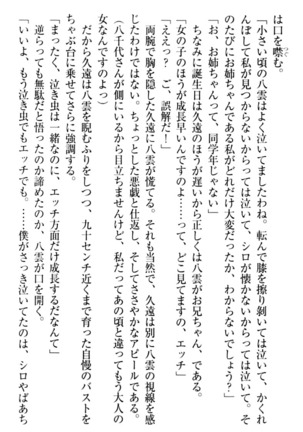 は口を噤む。
「小さい頃の八雲はよく泣いてましたわね。転んで膝を擦り剥いては泣いて、かくれ
んぼして私が見つからないからっては泣いて、シロが懐かないからっては泣いて。そ
のたびにお姉ちゃんである私がどれだけ大変だったか、わからないでしょう？」
「お、お姉ちゃんって、同学年じゃない」
「女の子のほうが成長早いんですのよ……って、どこ見てますの、エッチ」
ちなみに誕生日は久遠のほうが遅いから正しくは八雲がお兄ちゃん、である。
「ええっ？　ご、誤解だ！」
両腕で胸を隠した久遠に八雲が慌てる。それも当然で、久遠は別に八雲の視線を感
じたわけではない。ちょっとした悪戯と仕返し、そしてささやかなアピールである。
（八千代さんが側にいるから目立ちませんけど、私だってあの頃と違ってもう大人の
女なんですのよっ）
だから久遠は八雲を睨むふりをしつつ、九十センチ近くまで育った自慢のバストを
ちゃぶ台に乗せてさらに強調する。
「まったく、泣き虫は一緒なのに、エッチ方面だけ成長するだなんて」
逆らっても無駄だと悟ったのか諦めたのか、八雲が口を開く。
「いいよ、もう泣き虫でもエッチでも。……僕がさっき泣いてたのは、シロやばあち